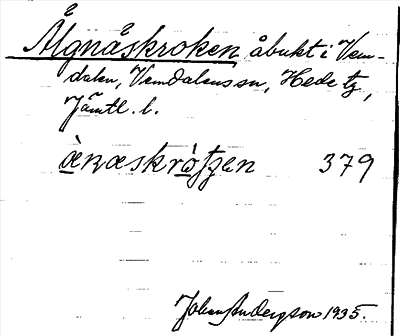 Ålgnåskroken åbukt i Vem-
dalen, Vemdalens sn, Hede tg,
Jämtl. l.
379
Johan Anderson 1935.